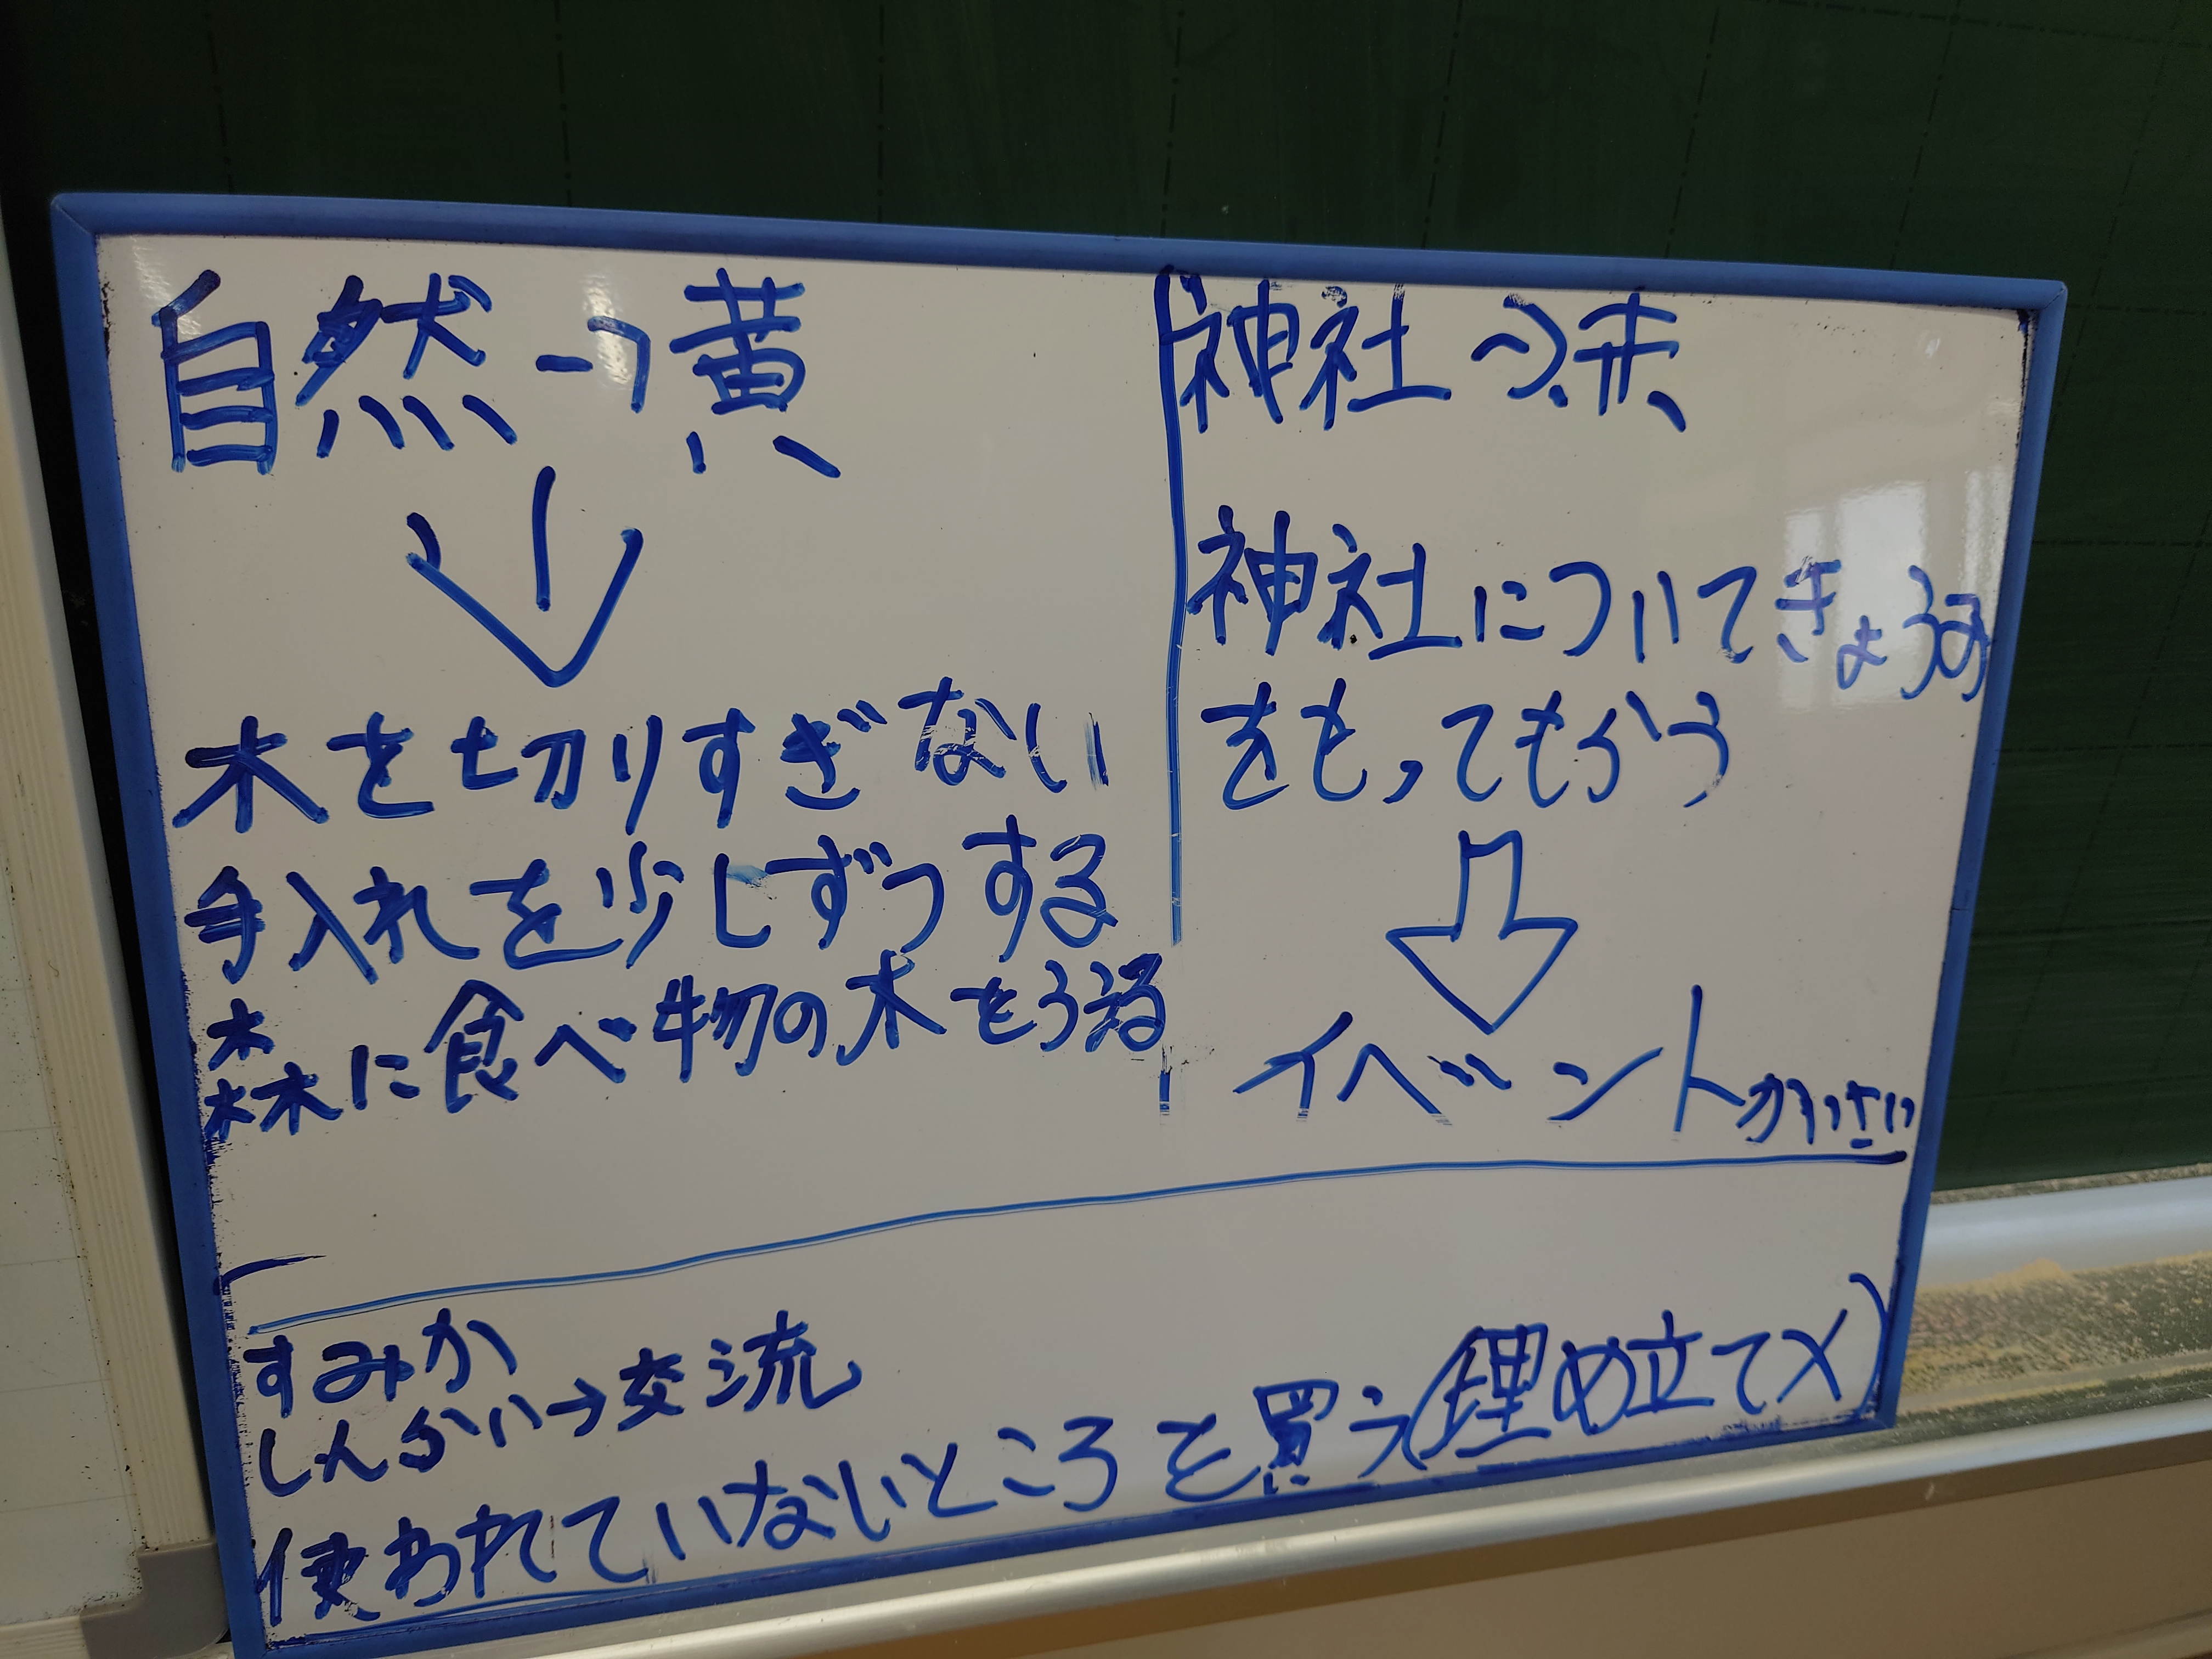 自然→黄
↓
木を切りすぎない
手入れを少しずつする
森に食べ物の木をうえる
神社→赤
神社についてきょうみ
をもってもらう
⇩
イベントかいさい
すみか
しんかい→交流
使われていないところを買う(埋め立て×)